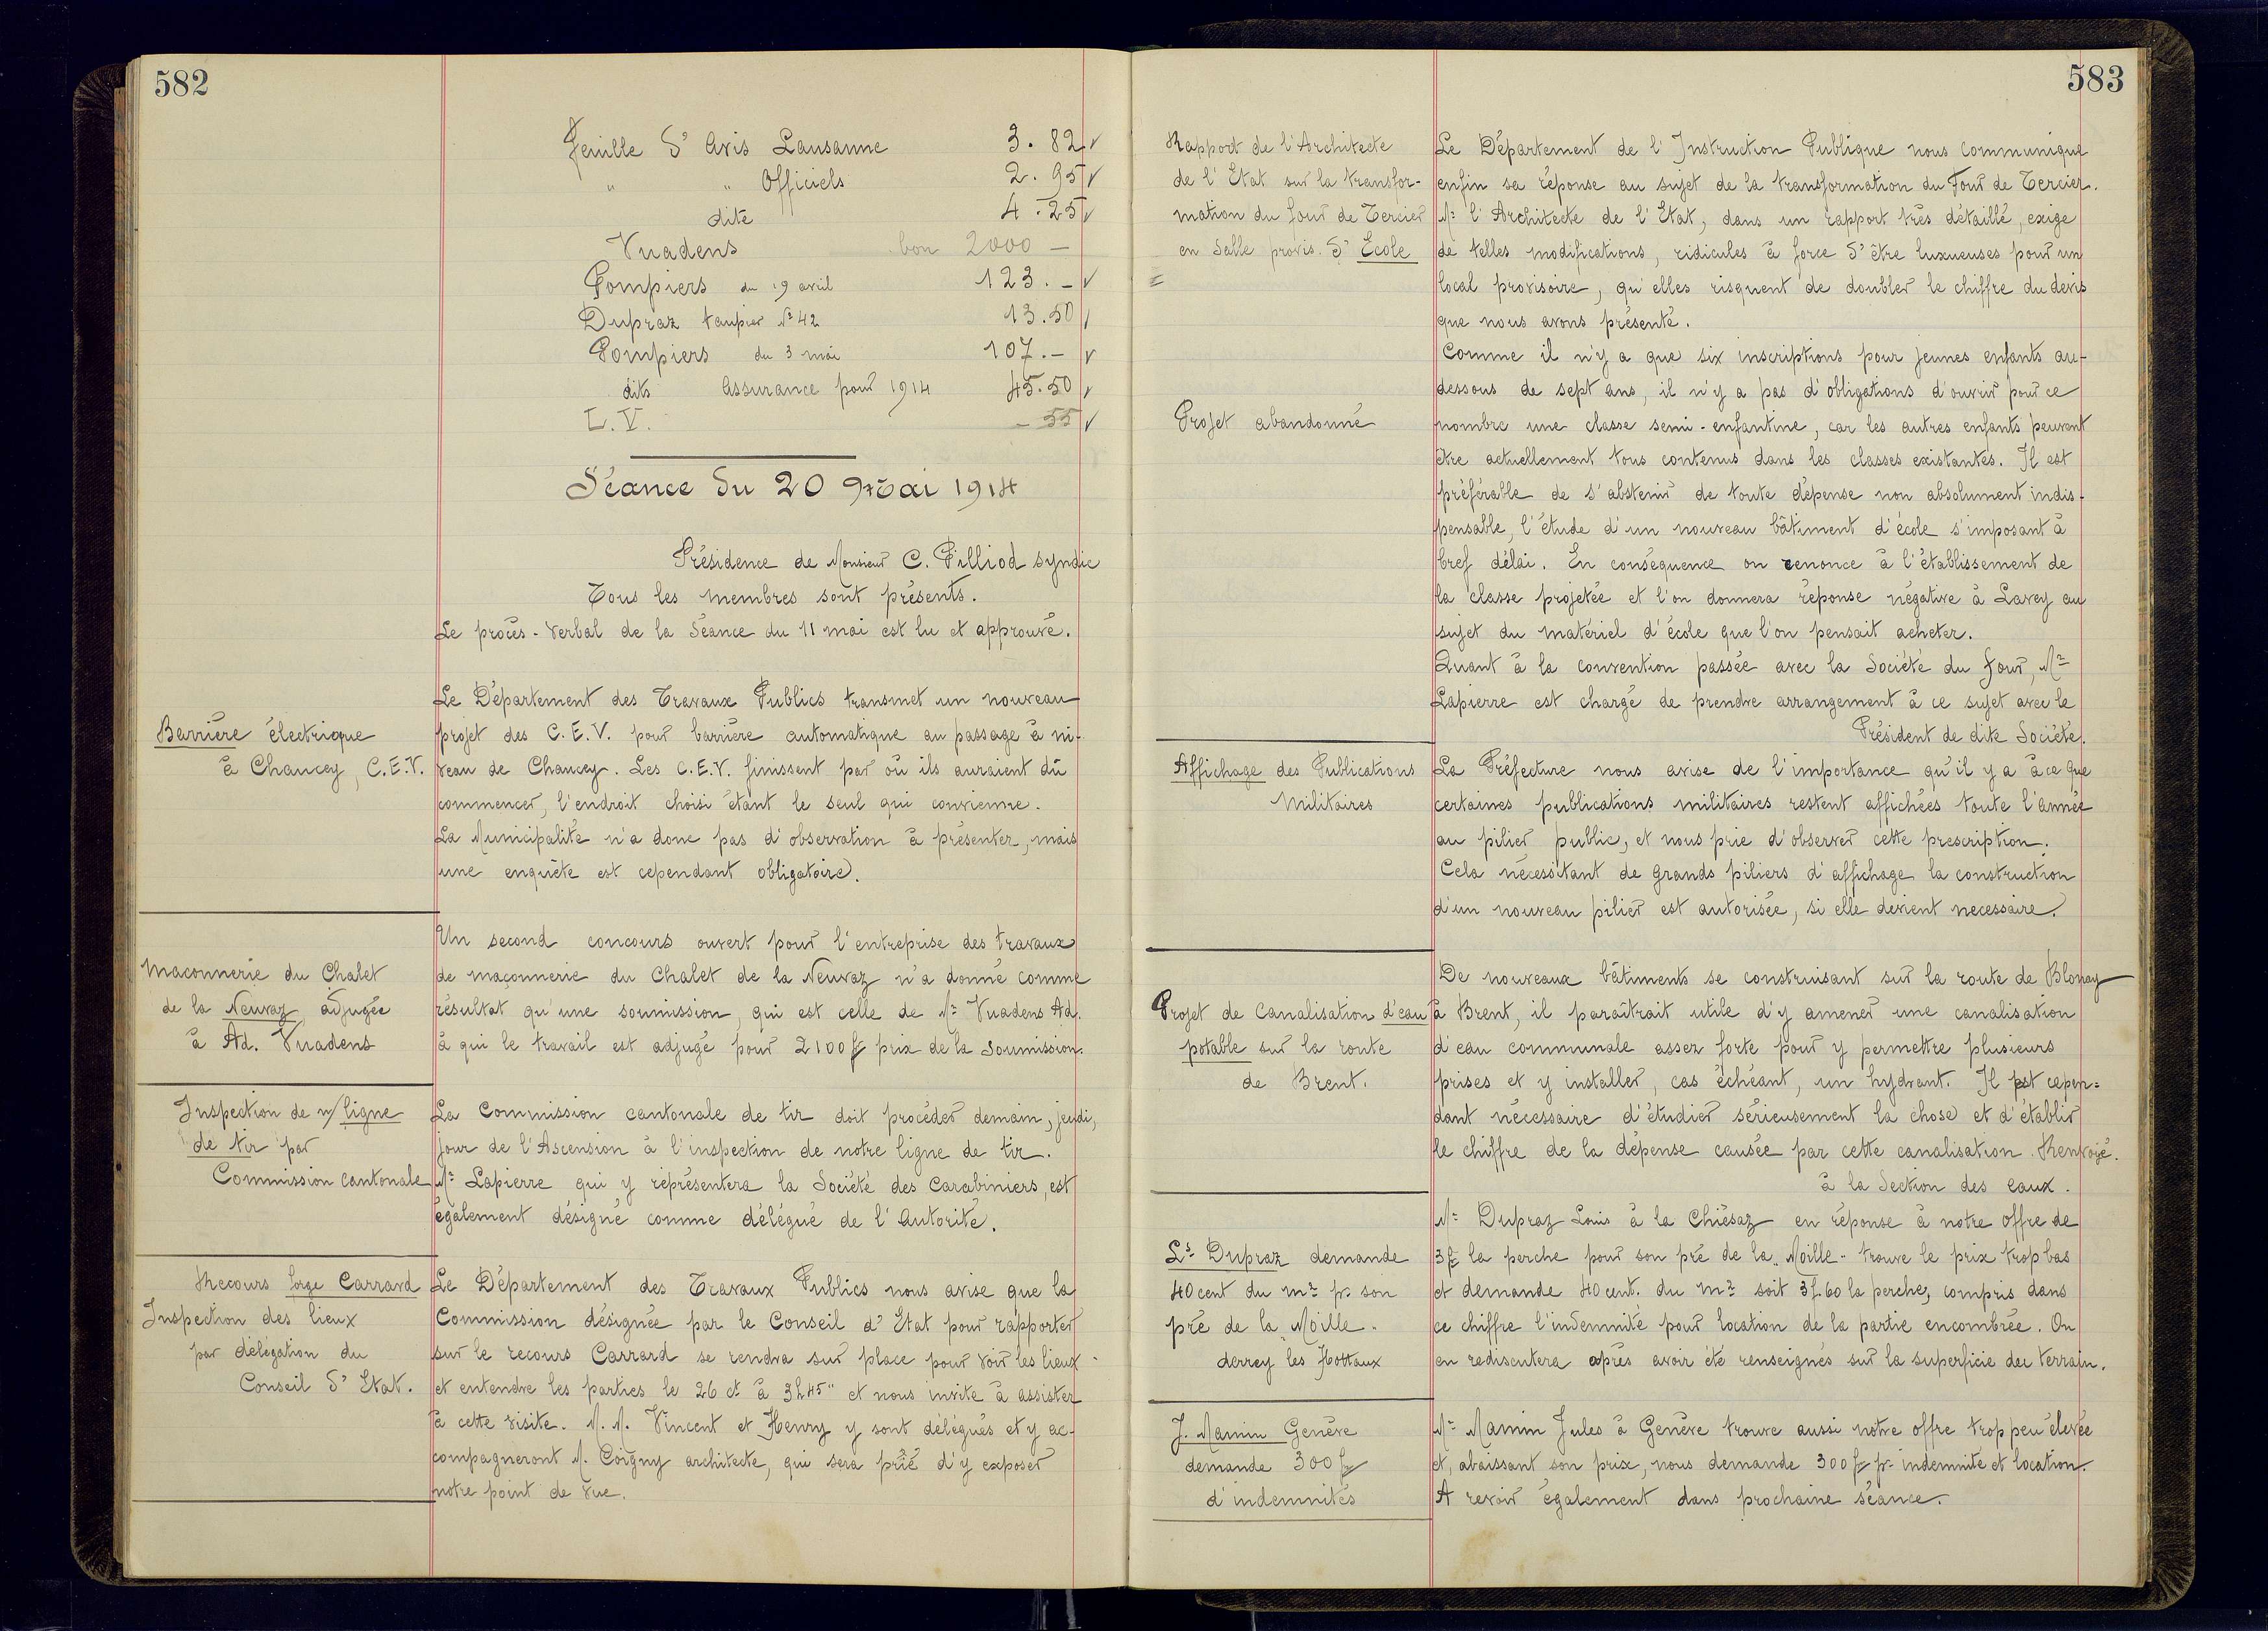 582
Feuille d'Avis Lausanne 3.82 ✓
" " Officiels 2.95 ✓
dite 4.25 ✓
Vuadens bon 2000 —
Pompiers du 19 avril 123.— ✓
Dupraz taupier No 42 13.50 ✓
Pompiers du 3 mai 107.— ✓
dits Assurance pour 1914 45.50 ✓
L.V. — 55 ✓
Séance du 20 Mai 1914
Présidence de Monsieur C. Pilliod syndic
Tous les membres sont présents.
Le procès-verbal de la Séance du 11 mai est lu et approuvé.
Barrière électrique
à Chancey, C.E.V.
Le Département des Travaux Publics transmet un nouveau
projet des C.E.V. pour barrière automatique au passage à ni-
veau de Chancey. Les C.E.V. finissent par où ils auraient dû
commencer, l'endroit choisi étant le seul qui convienne.
La Municipalité n'a donc pas d'observation à présenter, mais
une enquête est cependant obligatoire.
Maconnerie du Chalet
de la Neuvaz adjugée
à Ad. Vuadens
Un second concours ouvert pour l'entreprise des travaux
de maçonnerie du Chalet de la Neuvaz n'a donné comme
résultat qu'une soumission, qui est celle de Mr Vuadens Ad.
à qui le travail est adjugé pour 2100 fr prix de la Soumission.
Inspection de n/ ligne
de tir par
Commission cantonale
La Commission cantonale de tir doit procéder demain, jeudi,
jour de l'Ascension à l'inspection de notre ligne de tir.
Mr Lapierre qui y représentera la Société des Carabiniers, est
également désigné comme délégué de l'Autorité.
Recours forge Carrard
Inspection des lieux
par délégation du
Conseil d'Etat.
Le Département des Travaux Publics nous avise que la
Commission désignée par le Conseil d'Etat pour rapporter
sur le recours Carrard se rendra sur place pour voir les lieux
et entendre les parties le 26 ct à 3h45" et nous invite à assister
à cette visite. M.M. Vincent et Henry y sont délégués et y ac-
compagneront M. Coigny architecte, qui sera prié d'y exposer
notre point de vue.
583
Rapport de l'Architecte
de l'Etat sur la transfor-
mation du four de Tercier
en Salle provis. d'Ecole
Le Département de l'Instruction Publique nous communique
enfin sa réponse au sujet de la transformation du Four de Tercier.
Mr l'Architecte de l'Etat, dans un rapport très détaillé, exige
de telles modifications, ridicules à force d'être luxueuses pour un
local provisoire, qu'elles risquent de doubler le chiffre du devis
que nous avons présenté.
Projet abandonné
Comme il n'y a que six inscriptions pour jeunes enfants au-
dessous de sept ans, il n'y a pas d'obligations d'ouvrir pour ce
nombre une classe semi-enfantine, car les autres enfants peuvent
être actuellement tous contenus dans les classes existantes. Il est
préférable de s'abstenir de toute dépense non absolument indis-
pensable, l'étude d'un nouveau bâtiment d'école s'imposant à
bref délai. En conséquence on renonce à l'établissement de
la classe projetée et l'on donnera réponse négative à Lavey au
sujet du matériel d'école que l'on pensait acheter.
Quant à la convention passée avec la Société du four, Mr
Lapierre est chargé de prendre arrangement à ce sujet avec le
Président de dite Société.
Affichage des Publications
Militaires
La Préfecture nous avise de l'importance qu'il y a à ce que
certaines publications militaires restent affichées toute l'année
au pilier public, et nous prie d'observer cette prescription.
Cela nécessitant de grands piliers d'affichage la construction
d'un nouveau pilier est autorisée, si elle devient necessaire.
Projet de Canalisation d'eau
potable sur la route
de Brent.
De nouveaux bâtiments se construisant sur la route de Blonay
à Brent, il paraîtrait utile d'y amener une canalisation
d'eau communale assez forte pour y permettre plusieurs
prises et y installer, cas échéant, un hydrant. Il est cepen=
dant nécessaire d'étudier sérieusement la chose et d'établir
le chiffre de la dépense causée par cette canalisation. Renvoyé.
à la Section des eaux.
Ls Dupraz demande
40 cent du m2 pr son
pré de la "Moille"
derrey les Hottaux
Mr Dupraz Louis à la Chiésaz en réponse à notre offre de
3 fr la perche pour son pré de la "Moille" trouve le prix trop bas
et demande 40 cent. du m2 soit 3 f. 60 la perche, compris dans
ce chiffre l'indemnité pour location de la partie encombrée. On
en rediscutera après avoir été renseignés sur la superficie du terrain.
J. Mamin Genève
demande 300 fr
d'indemnités
Mr Mamin Jules à Genève trouve aussi notre offre trop peu élevée
et, abaissant son prix, nous demande 300 fr pr indemnité et location.
A revoir également dans prochaine séance.